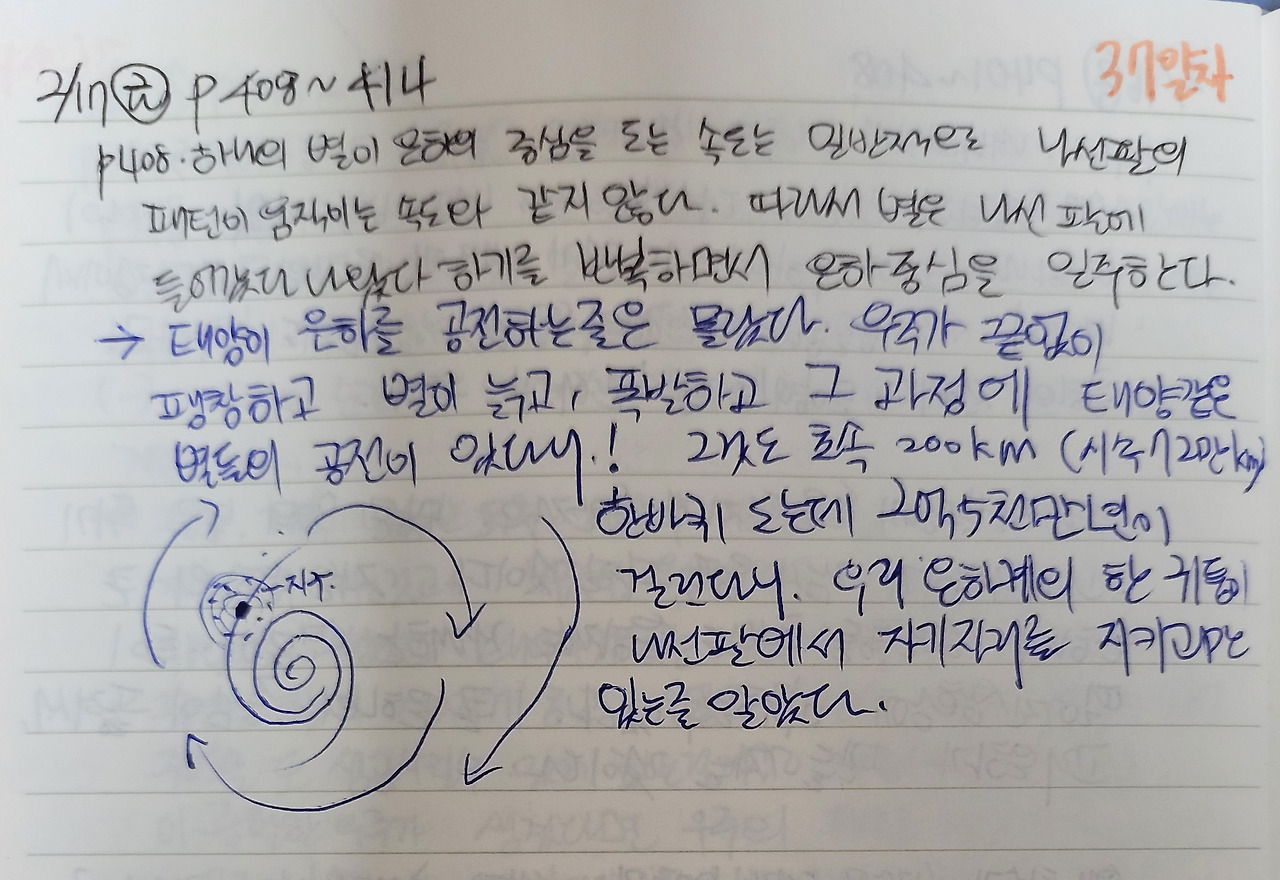 37일차
2/17 금 p408~414
p408. 하나의 별이 은하의 중심을 도는 속도는 일반적으로 나선팔의
패턴이 움직이는 속도와 같지 않다. 따라서 별은 나선 팔에
들어갔다 나왔다 하기를 반복하면서 은하 중심을 일주한다.
→ 태양이 은하를 공전하는줄은 몰랐다. 우주가 끝없이
팽창하고 별이 늙고, 폭발하고 그 과정에 태양같은
별들의 공전이 있다니.! 그것도 초속 200km (시속 72만km)
한바퀴 도는데 2억5천만년이
걸린다니. 우리 은하계의 한 귀퉁이
지구.
나선팔에서 자기자리를 지키고만
있는줄 알았다.